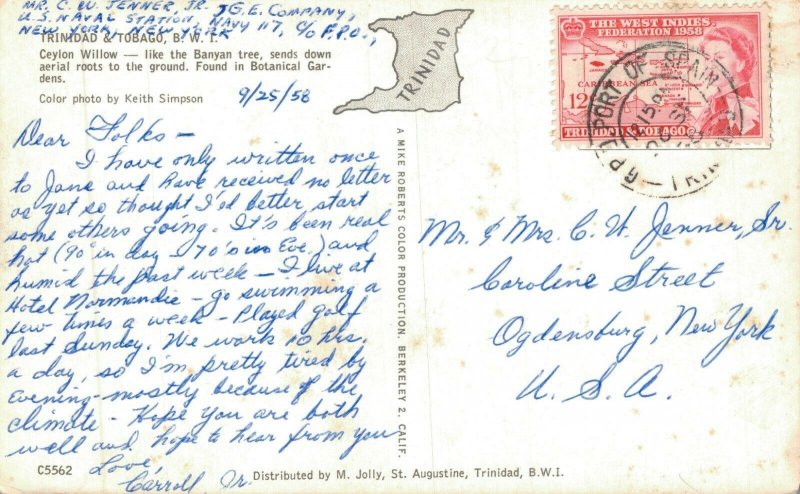 MR. C. W. JENNER, JR. %G.E. COMPANY,
U.S. NAVAL STATION, NAVY 117, C/O F.P.O.,
NEW YORK, NEW YORK
TRINIDAD & TOBAGO, B.W.I.
Ceylon Willow — like the Banyan tree, sends down
aerial roots to the ground. Found in Botanical Gar-
dens.
Color photo by Keith Simpson
9/25/58
TRINIDAD
Dear Folks —
I have only written once
to Jane and have received no letter
as yet so thought I'd better start
some others going. It's been real
hot (90° in day - 70's in Eve.) and
humid the past week — I live at
Hotel Normandie - go swimming a
few times a week - Played golf
last Sunday. We work 10 hrs.
a day, so I'm pretty tired by
Evening - mostly because of the
climate - Hope you are both
well and hope to hear from you
Love,
Carroll Jr.
C5562
Distributed by M. Jolly, St. Augustine, Trinidad, B.W.I.
A MIKE ROBERTS COLOR PRODUCTION. BERKELEY 2, CALIF.
THE WEST INDIES
FEDERATION 1958
CARIBBEAN SEA
12
TRINIDAD & TOBAGO
PORT OF SPAIN
Mr. & Mrs. C. W. Jenner, Sr.
Caroline Street
Ogdensburg, New York
U. S. A.